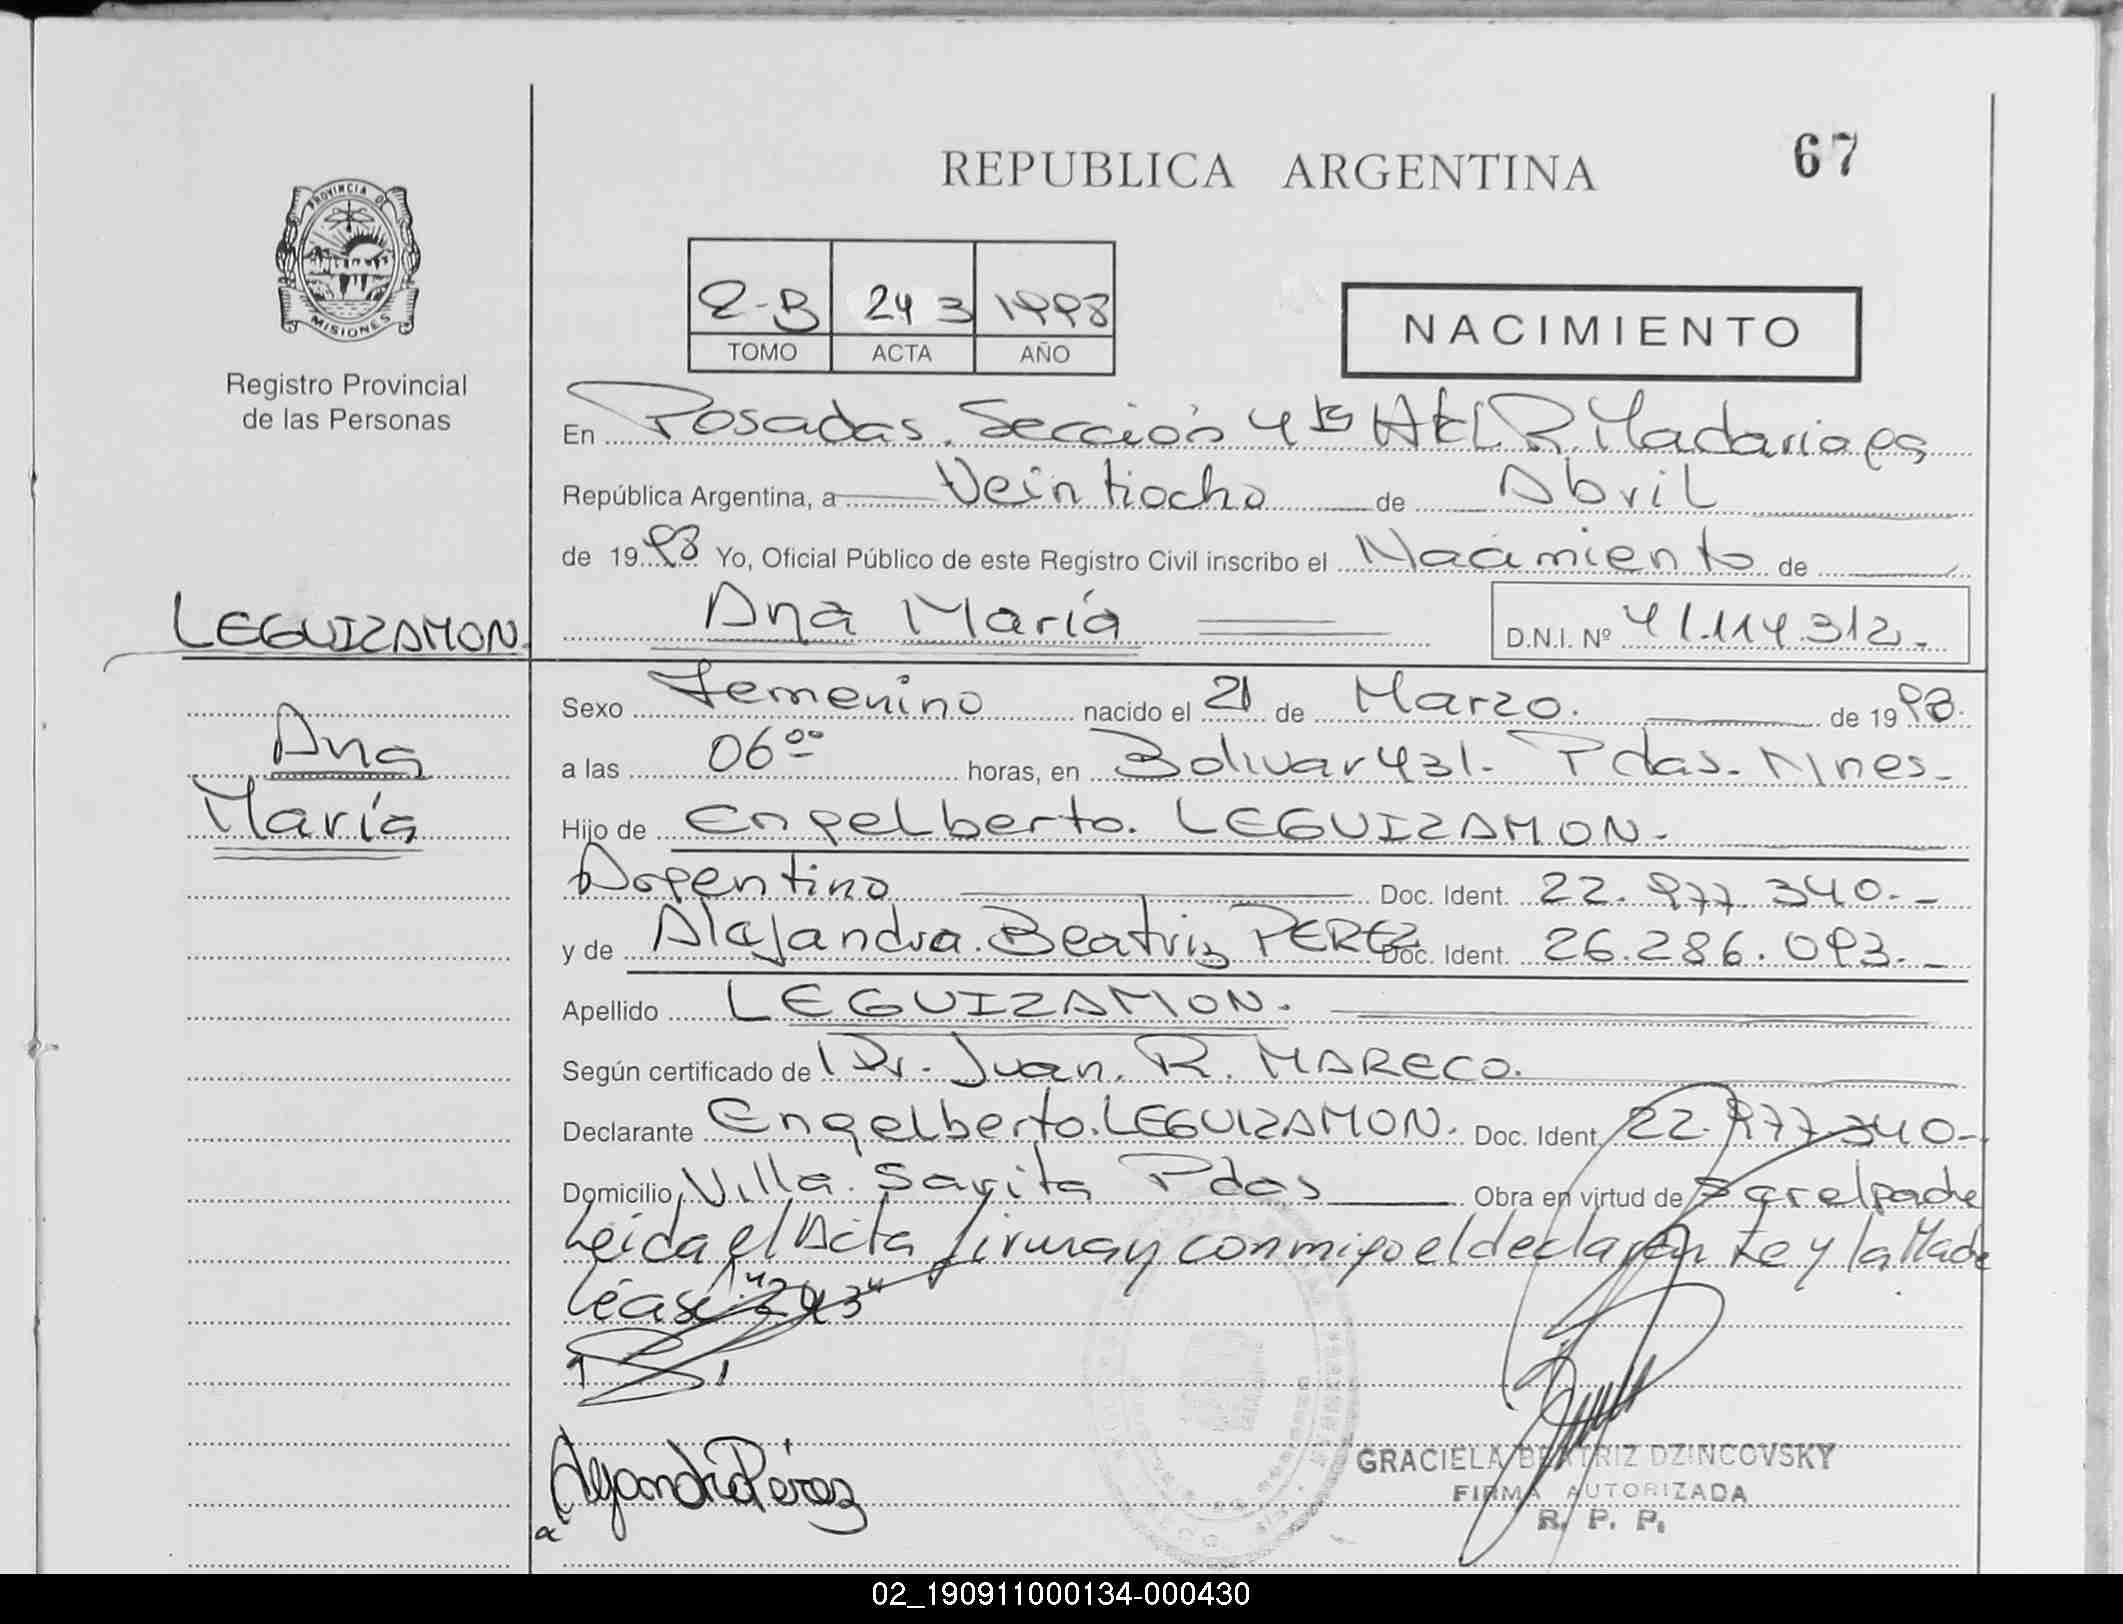 REPUBLICA ARGENTINA
67
PROVINCIA DE
MISIONES
Registro Provincial
de las Personas
2-B 243 1998
TOMO ACTA AÑO
NACIMIENTO
En Posadas. Sección 4ta R. Madariaga
República Argentina, a Veintiocho de Abril
de 1998 Yo, Oficial Público de este Registro Civil inscribo el Nacimiento de
LEGUIZAMON
Ana María
D.N.I. Nº 41.114.312.-
Ana
María
Sexo Femenino nacido el 21 de Marzo. de 1998.
a las 06⁰⁰ horas, en Bolivar 431. Pdas. Mnes.
Hijo de Engelberto. LEGUIZAMON.
Argentino Doc. Ident. 22.977.340.-
y de Alejandra. Beatriz PEREZ Doc. Ident. 26.286.093.-
Apellido LEGUIZAMON.
Según certificado de Dr. Juan. R. MARECO.
Declarante Engelberto. LEGUIZAMON. Doc. Ident. 22.977.340-
Domicilio Villa. Sarita Pdas Obra en virtud de Ser el padre
Leida el Acta firman conmigo el declarante y la Madre
léase: "243"
Alejandra Pérez
GRACIELA BEATRIZ DZINCOVSKY
FIRMA AUTORIZADA
R. P. P.
02_190911000134-000430